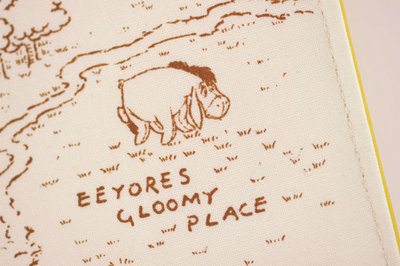 EEYORES
GLOOMY
PLACE